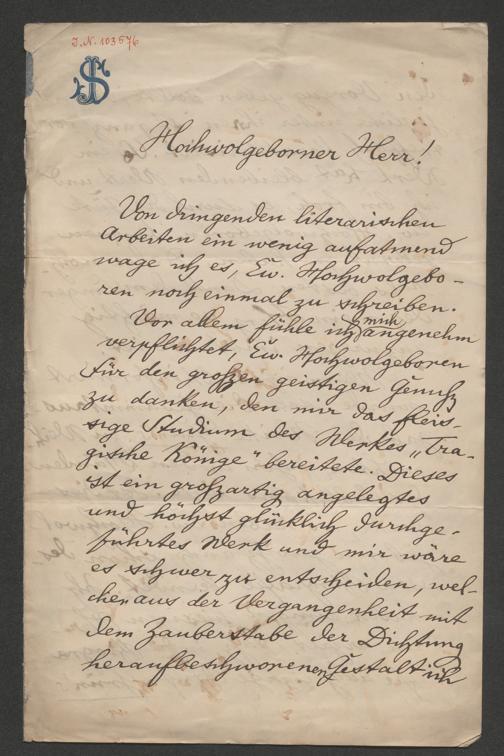 I.N. 103576
JS
Hochwolgeborner Herr!
Von dringenden literarischen
Arbeiten ein wenig aufatmend
wage ich es, Ew. Hochwolgebo-
ren noch einmal zu schreiben.
Vor allem fühle ich mich angenehm
verpflichtet, Ew. Hochwolgeboren
für den großen geistigen Genuß
zu danken, den mir das fleis-
sige Studium des Werkes „Tra-
gische Könige" bereitete. Dieses
ist ein großartig angelegtes
und höchst glücklich durchge-
führtes Werk und mir wäre
es schwer zu entscheiden, wel-
cher aus der Vergangenheit mit
dem Zauberstabe der Dichtung
heraufbeschworenen Gestalt ich